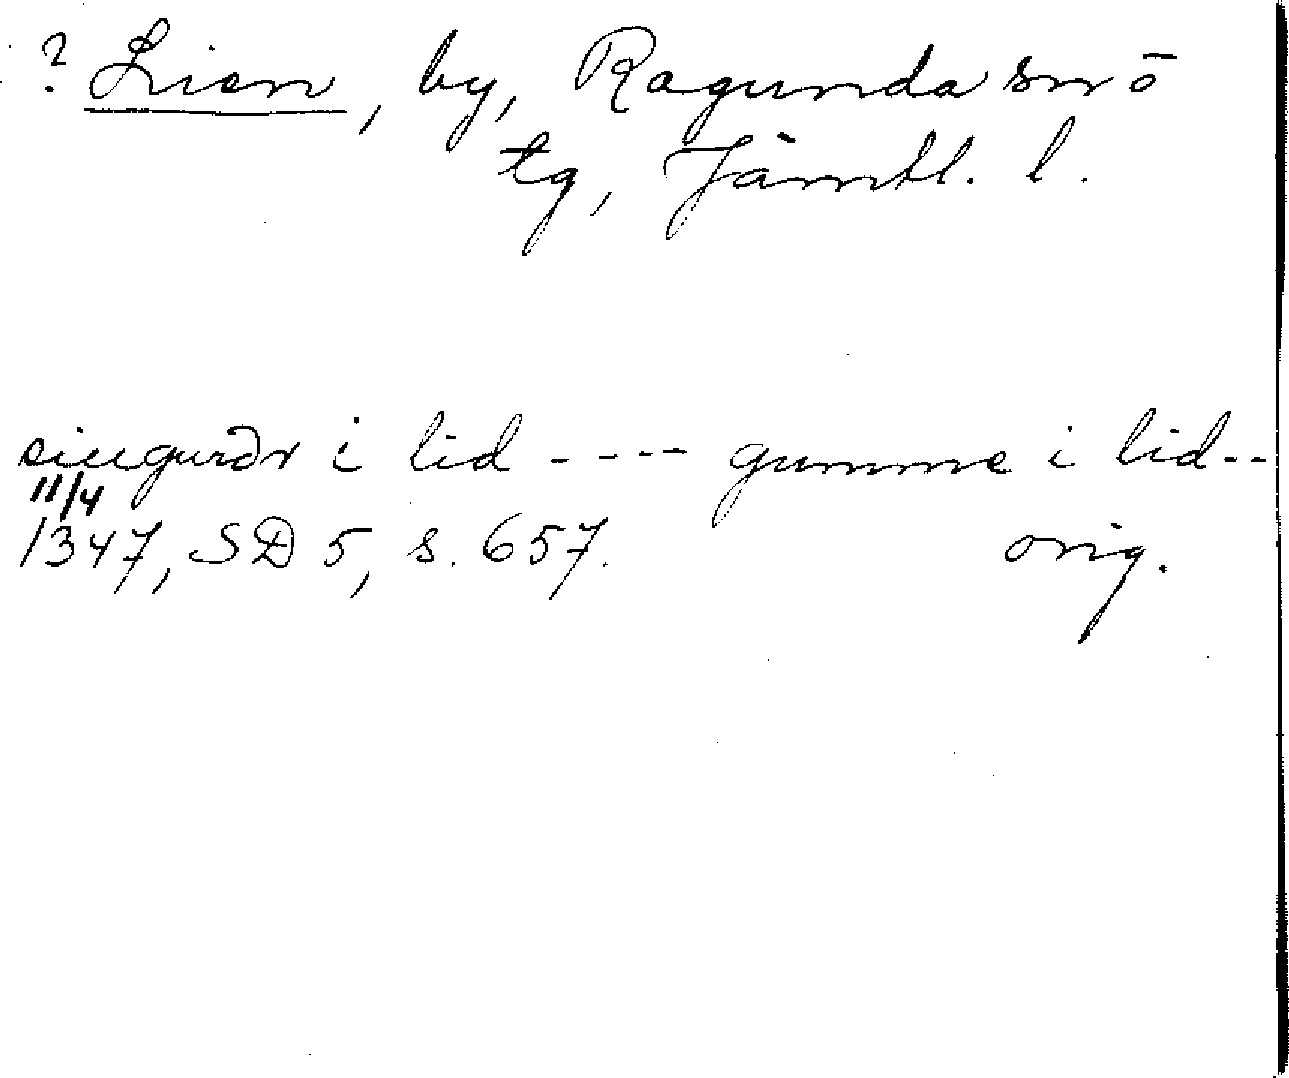 ? Lien, by, Ragunda sn o
tg, Jämtl. l.
siugurðr i lid ---- gumme i lid--
11/4
1347, SD 5, s. 657. orig.